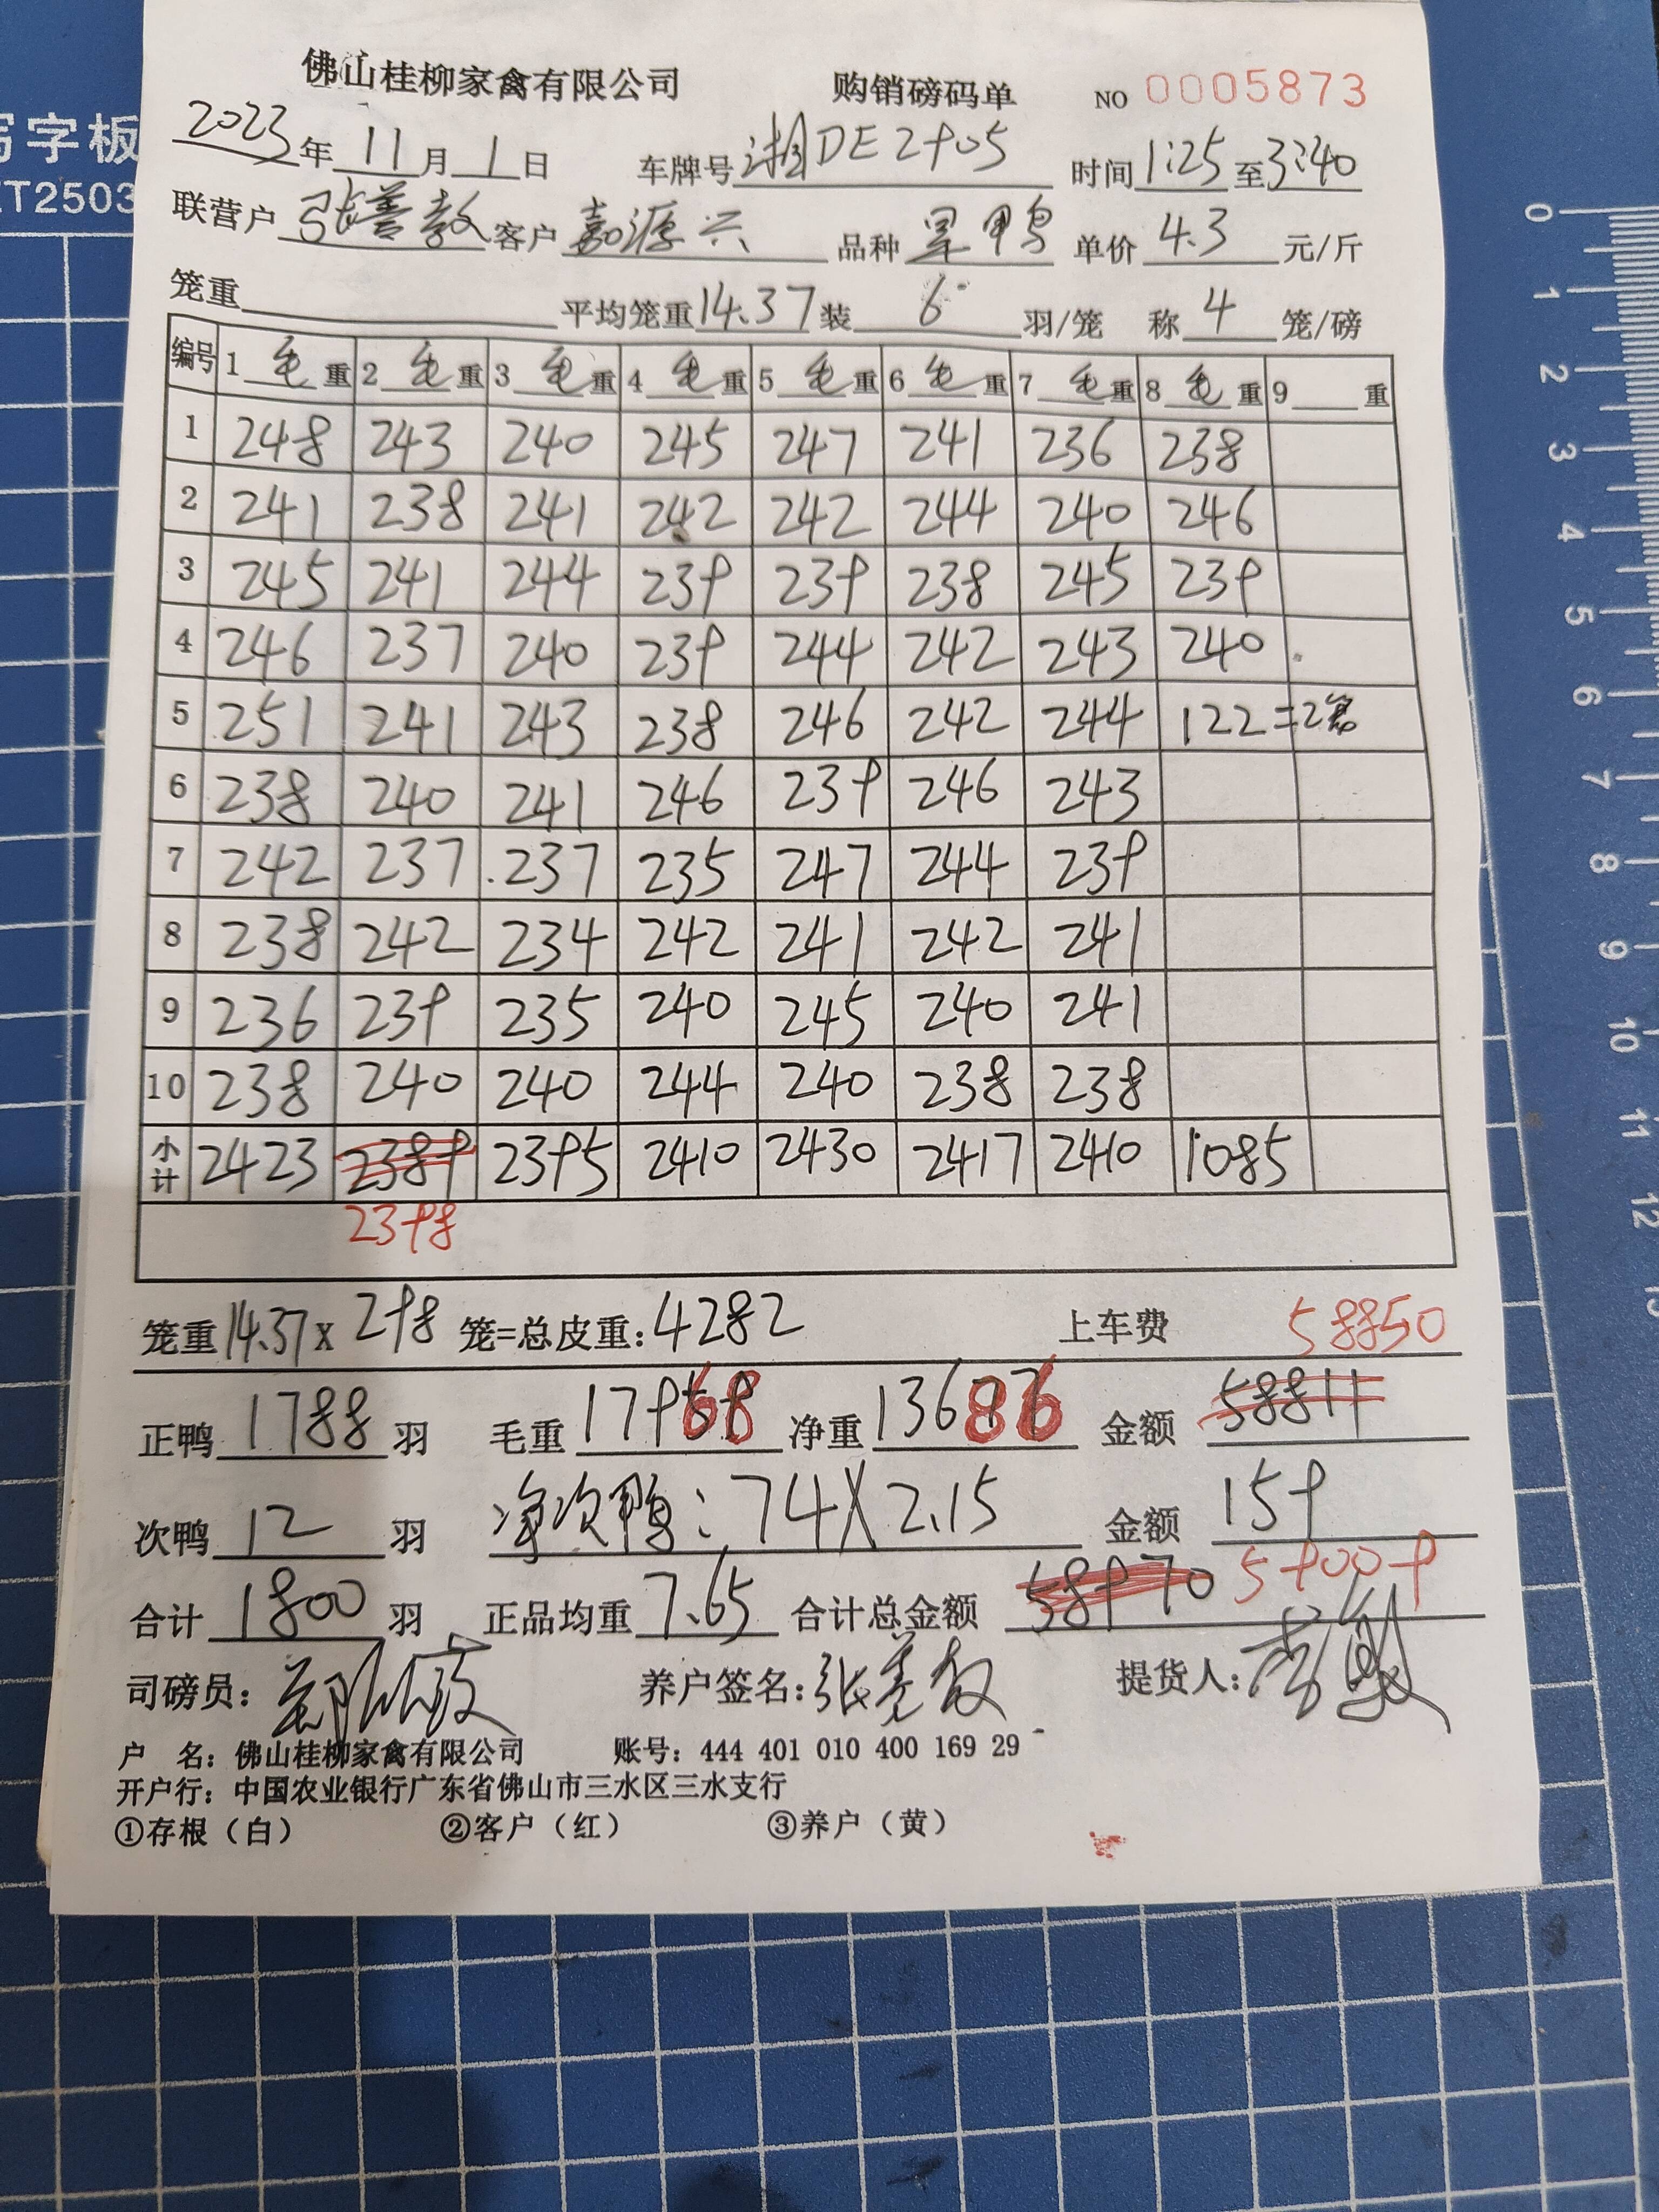 写字板
ET2503
佛山桂柳家禽有限公司 购销磅码单 NO 0005873
2023年11月1日 车牌号湘DE2905 时间1:25至3:40
联营户张善教客户嘉源兴 品种旱鸭 单价4.3元/斤
笼重 平均笼重14.37装6羽/笼 称4笼/磅
编号 1毛重 2毛重 3毛重 4毛重 5毛重 6毛重 7毛重 8毛重 9重
1 248 243 240 245 247 241 236 238
2 241 238 241 242 242 244 240 246
3 245 241 244 239 239 238 245 239
4 246 237 240 239 244 242 243 240
5 251 241 243 238 246 242 244 122=2笼
6 238 240 241 246 239 246 243
7 242 237 237 235 247 244 239
8 238 242 234 242 241 242 241
9 236 239 235 240 245 240 241
10 238 240 240 244 240 238 238
小计 2423 2389 2395 2410 2430 2417 2410 1085
2398
笼重14.37x298笼=总皮重:4282 上车费 58850
正鸭1788羽 毛重17968 净重13686 金额58811
次鸭12羽 净次鸭:74X2.15 金额159
合计1800羽 正品均重7.65 合计总金额58970 59009
司磅员: 养户签名:张善教 提货人:
户 名:佛山桂柳家禽有限公司 账号:444 401 010 400 169 29
开户行:中国农业银行广东省佛山市三水区三水支行
①存根(白) ②客户(红) ③养户(黄)
0
1
2
3
4
5
6
7
8
9
10
11
12
13